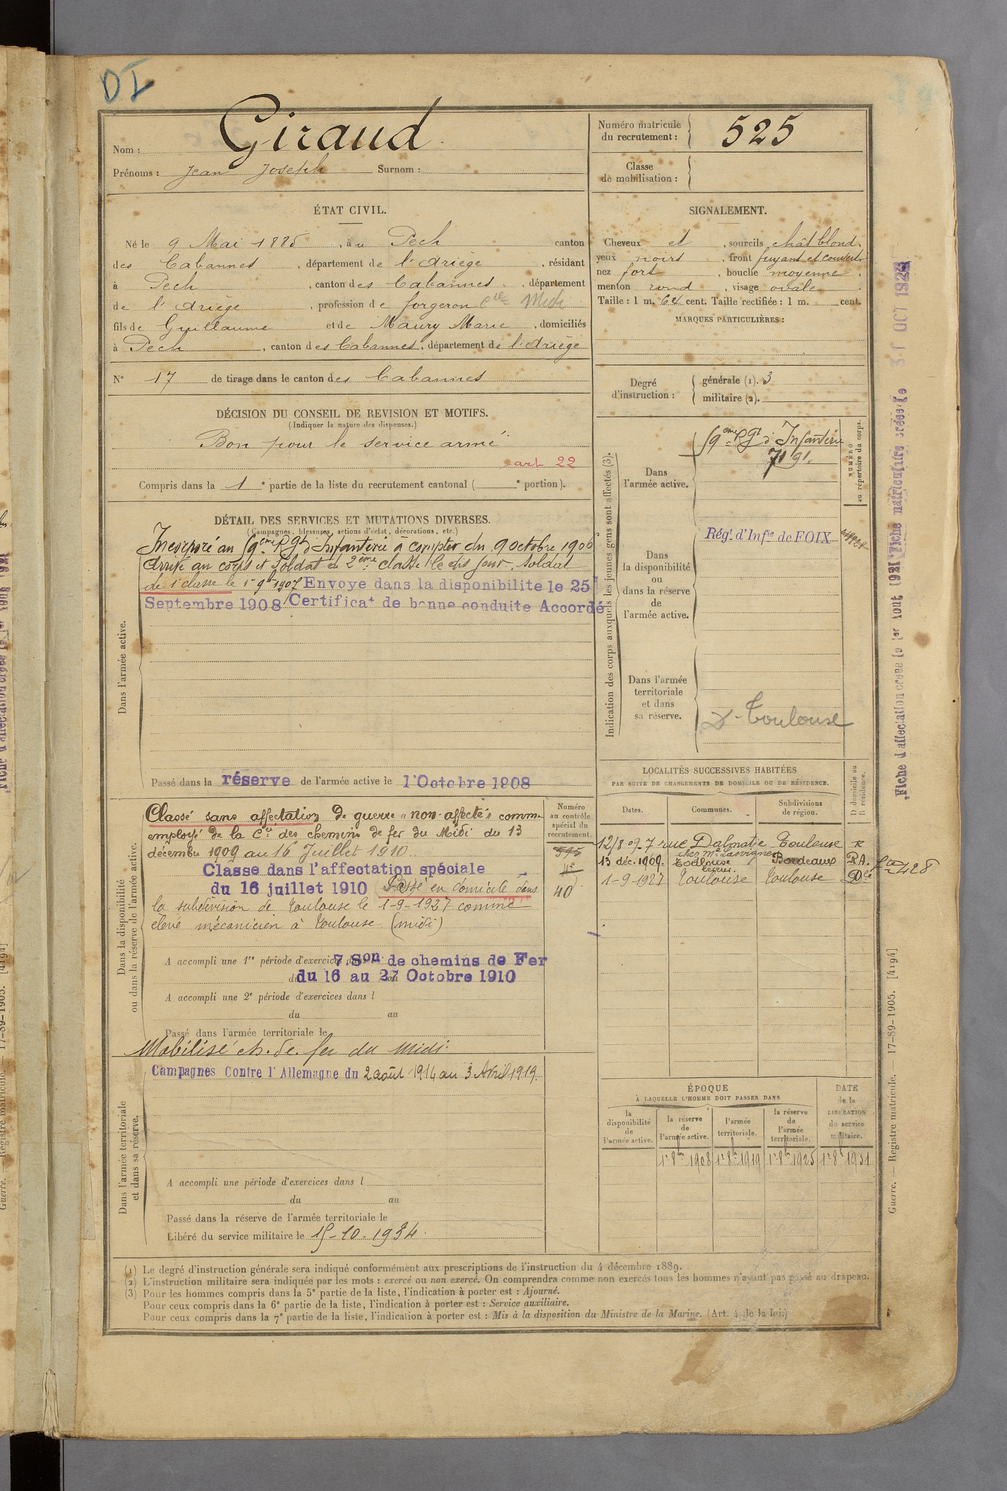 DI
Nom : Giraud
Prénoms : Jean Joseph Surnom :
Numéro matricule du recrutement : 525
Classe de mobilisation :
ÉTAT CIVIL.
Né le 9 Mai 1885, à au Pech canton
des Cabannes, département de l'Ariège, résidant
à Pech, canton des Cabannes, département
de l'Ariège, profession de forgeron Cie Midi
fils de Guillaume et de Maury Marie, domiciliés
à Pech, canton des Cabannes, département de l'Ariège
N° 17 de tirage dans le canton des Cabannes
SIGNALEMENT.
Cheveux et, sourcils chât blond.
yeux noirs, front fuyant et couvert
nez fort, bouche moyenne
menton rond, visage ovale
Taille : 1 m. 64 cent. Taille rectifiée : 1 m. cent.
MARQUES PARTICULIÈRES :
Degré d'instruction :
générale (1). 3
militaire (2).
DÉCISION DU CONSEIL DE REVISION ET MOTIFS.
(Indiquer la nature des dispenses.)
Bon pour le service armé
art 22
Compris dans la 1e partie de la liste du recrutement cantonal ( e portion).
DÉTAIL DES SERVICES ET MUTATIONS DIVERSES.
(Campagnes, blessures, actions d'éclat, décorations, etc.)
Incorporé au 59eme Rgt d'Infanterie à compter du 9 octobre 1906
Arrivé au corps et soldat de 2eme classe le dit jour. soldat
de 1e classe le 1er 9bre 1907 Envoyé dans la disponibilite le 25
Septembre 1908 Certificat de bonne conduite Accordé
Dans l'armée active.
Passé dans la réserve de l'armée active le 1 Octobre 1908
Indication des corps auxquels les jeunes gens sont affectés (3).
Dans l'armée active.
59eme Rgt d'Infanterie
NUMÉRO au répertoire du corps.
Dans la disponibilité ou dans la réserve de l'armée active.
Régt d'Infie de FOIX
Dans l'armée territoriale et dans sa réserve.
Toulouse
Dans la disponibilité ou dans la réserve de l'armée active.
Classé sans affectation de guerre "non-affectés" comme
employé de la Cie des chemins de fer du Midi du 13
décembre 1909 au 16 Juillet 1910.
Classe dans l'affectation spéciale
du 16 juillet 1910 Passé en domicile dans
la subdivision de Toulouse le 1-9-1927 comme
élève mécanicien à Toulouse (midi)
A accompli une 1re période d'exercices 7 Son de chemins de Fer
du 16 au 27 Octobre 1910
A accompli une 2e période d'exercices dans l
du au
Passé dans l'armée territoriale le
Mobilisé ch. de fer du Midi
Numéro au contrôle spécial du recrutement.
40
LOCALITÉS SUCCESSIVES HABITÉES
PAR SUITE DE CHANGEMENTS DE DOMICILE OU DE RÉSIDENCE.
Dates. Communes. Subdivisions de région. D domicile ou R résidence.
12/8 09 7 rue Dalmatie Toulouse R
13 déc. 1909. Toulouse Bordeaux R.A.
1-9-1927 Toulouse Toulouse Dé
428
Dans l'armée territoriale et dans sa réserve.
Campagnes Contre l'Allemagne du 2 août 1914 au 3 Avril 1919.
A accompli une période d'exercices dans l
du au
Passé dans la réserve de l'armée territoriale le
Libéré du service militaire le 15-10-1934
ÉPOQUE
À LAQUELLE L'HOMME DOIT PASSER DANS
la disponibilité de l'armée active. la réserve de l'armée active. l'armée territoriale. la réserve de l'armée territoriale.
DATE de la LIBÉRATION du service militaire.
1r 8bre 1908 1r 8bre 1919 1r 8bre 1925 1r 8bre 1931
(1) Le degré d'instruction générale sera indiqué conformément aux prescriptions de l'instruction du 4 décembre 1889.
(2) L'instruction militaire sera indiquée par les mots : exercé ou non exercé. On comprendra comme non exercés tous les hommes n'ayant pas passé au drapeau.
(3) Pour les hommes compris dans la 5e partie de la liste, l'indication à porter est : Ajourné.
Pour ceux compris dans la 6e partie de la liste, l'indication à porter est : Service auxiliaire.
Pour ceux compris dans la 7e partie de la liste, l'indication à porter est : Mis à la disposition du Ministre de la Marine. (Art. 4 de la loi.)
Fiche d'affectation créée le 1er Août 1921 Fiche matriculaire créée le 31 OCT 1928
Guerre. — Registre matricule. — 17-89-1905. [4194]